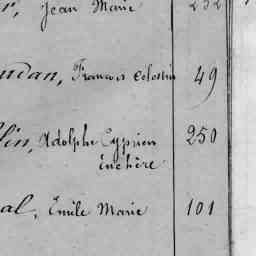 r, Jean Marie 252
udan, François Célestin 49
lin, Adolphe Cyprien 250
Enchère
al, Émile Marie 101